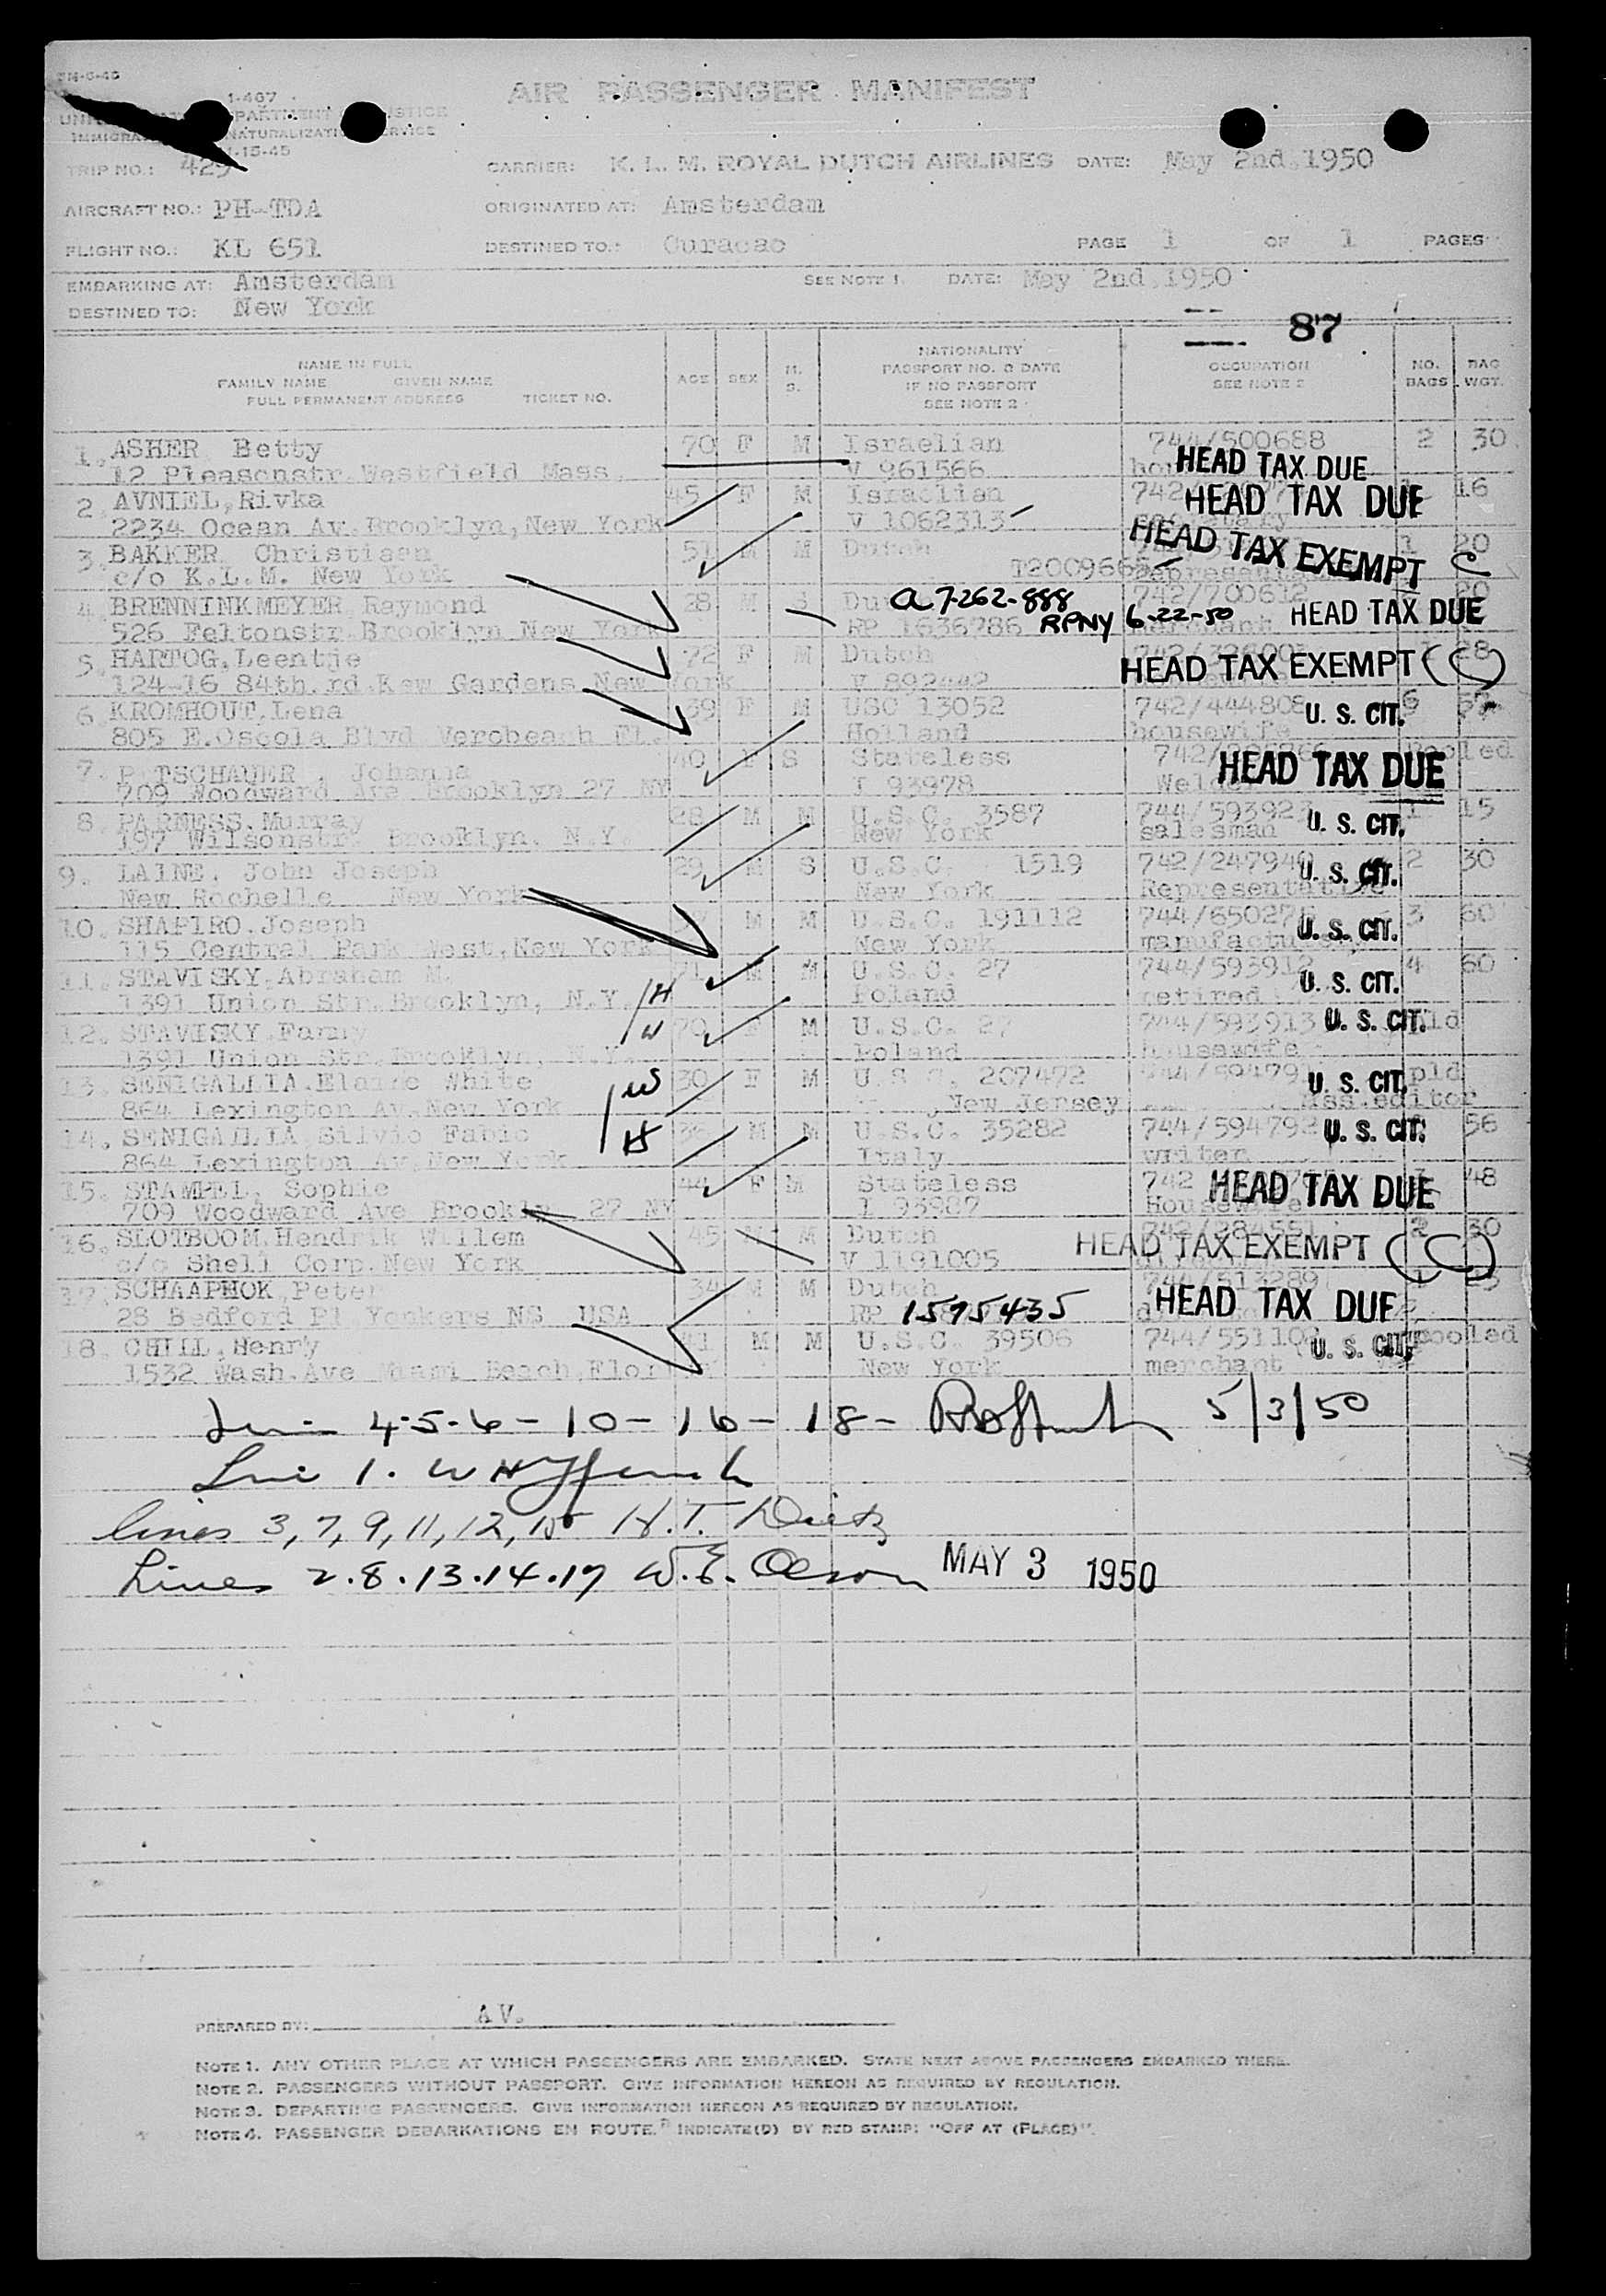 FM-6-45
1-467
AIR PASSENGER MANIFEST
IMMIGRA NATURALIZATI SERVICE
1-15-45
TRIP NO.: 429 CARRIER: K. L. M. ROYAL DUTCH AIRLINES DATE: May 2nd.1950
AIRCRAFT NO.: PH-TDA ORIGINATED AT: Amsterdam
FLIGHT NO.: KL 651 DESTINED TO.: Curacao PAGE 1 OF 1 PAGES
EMBARKING AT: Amsterdam SEE NOTE 1. DATE: May 2nd.1950
DESTINED TO: New York
87
NAME IN FULL
FAMILY NAME GIVEN NAME
FULL PERMANENT ADDRESS TICKET NO.
AGE SEX M. S.
NATIONALITY
PASSPORT NO. & DATE
IF NO PASSPORT
SEE NOTE 2
OCCUPATION
SEE NOTE 2
NO. BAGS
BAG WGT.
1. ASHER Betty 70 F M Israelian 744/500688 2 30
12 Pleasonstr.Westfield Mass. V 961566 HEAD TAX DUE
2. AVNIEL,Rivka 45 F M Israelian 742/ HEAD TAX DUE 16
2234 Ocean Av.Brooklyn,New York V 1062313
3. BAKKER Christiaan 51 M M Dutch HEAD TAX EXEMPT C 1 20
c/o K.L.M. New York
4. BRENNINKMEYER Raymond 28 M S Du a7-262-888 742/700612 20
526 Feltonstr.Brooklyn New York RP 1636786 RPNY 6-22-50 HEAD TAX DUE
5. HARTOG,Leentje 72 F M Dutch HEAD TAX EXEMPT (C) 28
124-16 84th.rd.Kew Gardens New York V 892442
6 KROMHOUT,Lena 39 F M USC 13052 742/444808 U. S. CIT.
805 E.Osceola Blvd Verobeach Fl. Holland housewife
7. P TSCHAUER , Johanna 40 F S Stateless 742/ HEAD TAX DUE Pooled
709 Woodward Ave Brooklyn 27 NY I 93978
8. PARNESS,Murray 28 M M U.S.C. 3587 744/593923 U. S. CIT. 1 15
197 Wilsonstr. Brooklyn. N.Y. New York salesman
9. LAINE, John Joseph 29 M S U.S.C. 1519 742/247940 U. S. CIT. 2 30
New Rochelle New York New York Representative
10. SHAPIRO,Joseph M M U.S.C. 191112 744/65027 U. S. CIT. 3 60
115 Central Park West,New York New York
11. STAVISKY,Abraham M. 71 M M U.S.C. 27 744/593912 U. S. CIT. 4 60
1391 Union Str.Brooklyn, N.Y. H Poland retired
12. STAVISKY,Fanny W 70 F M U.S.C. 27 744/593913 U. S. CIT. pld
1391 Union Str.Brooklyn, N.Y. Poland housewife
13. SENIGALLIA,Elaine White W 30 F M U.S.C. 207472 U. S. CIT. pld
864 Lexington Av.New York New Jersey Ass.editor
14. SENIGALLIA Silvio Fabio H M M U.S.C. 35282 744/594792 U. S. CIT. 56
864 Lexington Av New York Italy writer
15. STAMPEL, Sophie 44 F M Stateless 742 HEAD TAX DUE 48
709 Woodward Ave Brooklyn 27 NY Housewife
16. SLOTBOOM,Hendrik Willem 45 M M Dutch 742/284551 2 30
c/o Shell Corp.New York V 1191005 HEAD TAX EXEMPT (C)
17. SCHAAPHOK,Peter 34 M M Dutch 744/513289 1
28 Bedford Pl Yonkers NS USA RP 1575435 HEAD TAX DUE
18. CHILL,Henry M M U.S.C. 39506 744/55110 U. S. CIT. pooled
1532 Wash.Ave Miami Beach,Flor New York merchant
4-5-6-10-16-18- 5/3/50
Line 1.
lines 3, 7, 9, 11, 12, 15 H.T. Dietz
Lines 2.8.13.14.17 W.E. Olson MAY 3 1950
PREPARED BY: AV.
NOTE 1. ANY OTHER PLACE AT WHICH PASSENGERS ARE EMBARKED. STATE NEXT ABOVE PASSENGERS EMBARKED THERE.
NOTE 2. PASSENGERS WITHOUT PASSPORT. GIVE INFORMATION HEREON AS REQUIRED BY REGULATION.
NOTE 3. DEPARTING PASSENGERS. GIVE INFORMATION HEREON AS REQUIRED BY REGULATION.
NOTE 4. PASSENGER DEBARKATIONS EN ROUTE. INDICATE(D) BY RED STAMP: "OFF AT (PLACE)".